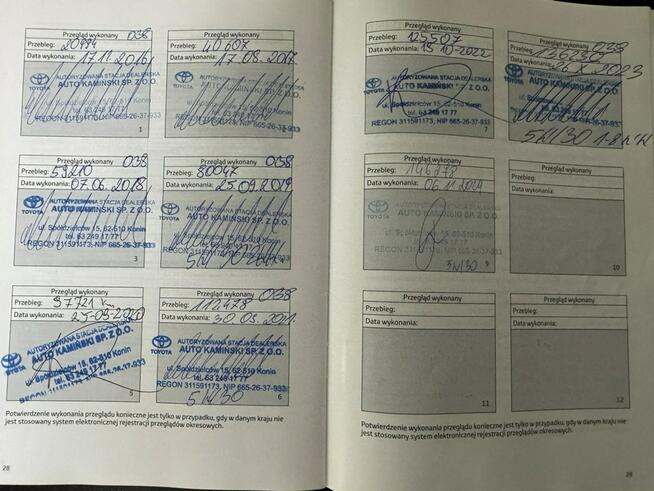 Przegląd wykonany 038
Przebieg: 20984
Data wykonania: 17.11.2016
TOYOTA
AUTORYZOWANA STACJA DEALERSKA
AUTO KAMIŃSKI SP. Z O.O.
ul. Spółdzielców 15, 62-510 Konin
tel. 63 249 17 77
REGON 311591173, NIP 665-26-37-933
1
Przegląd wykonany
Przebieg: 40607
Data wykonania: 17.08.2017
TOYOTA
AUTORYZOWANA STACJA DEALERSKA
AUTO KAMIŃSKI SP. Z O.O.
ul. Spółdzielców 15, 62-510 Konin
tel. 63 249 17 77
REGON 311591173, NIP 665-26-37-933
Przegląd wykonany 038
Przebieg: 59210
Data wykonania: 07.06.2018
TOYOTA
AUTORYZOWANA STACJA DEALERSKA
AUTO KAMIŃSKI SP. Z O.O.
ul. Spółdzielców 15, 62-510 Konin
tel. 63 249 17 77
REGON 311591173, NIP 665-26-37-933
3
Przegląd wykonany 038
Przebieg: 80047
Data wykonania: 25.09.2019
TOYOTA
AUTORYZOWANA STACJA DEALERSKA
AUTO KAMIŃSKI SP. Z O.O.
ul. Spółdzielców 15, 62-510 Konin
tel. 63 249 17 77
REGON 311591173, NIP 665-26-37-933
Przegląd wykonany
Przebieg: 97721 km
Data wykonania: 25-09-2020
TOYOTA
AUTORYZOWANA STACJA DEALERSKA
AUTO KAMIŃSKI SP. Z O.O.
ul. Spółdzielców 15, 62-510 Konin
tel. 63 249 17 77
REGON 311591173, NIP 665-26-37-933
5
Przegląd wykonany 038
Przebieg: 112478
Data wykonania: 30.09.2021
TOYOTA
AUTORYZOWANA STACJA DEALERSKA
AUTO KAMIŃSKI SP. Z O.O.
ul. Spółdzielców 15, 62-510 Konin
tel. 63 249 17 77
REGON 311591173, NIP 665-26-37-933
5W30
6
Potwierdzenie wykonania przeglądu konieczne jest tylko w przypadku, gdy w danym kraju nie
jest stosowany system elektronicznej rejestracji przeglądów okresowych.
28
Przegląd wykonany
Przebieg: 125507
Data wykonania: 15-10-2022
TOYOTA
AUTORYZOWANA STACJA DEALERSKA
AUTO KAMIŃSKI SP. Z O.O.
ul. Spółdzielców 15, 62-510 Konin
tel. 63 249 17 77
REGON 311591173, NIP 665-26-37-933
7
Przegląd wykonany 038
Przebieg: 136230
Data wykonania: 2023
TOYOTA
AUTORYZOWANA STACJA DEALERSKA
AUTO KAMIŃSKI SP. Z O.O.
ul. Spółdzielców 15, 62-510 Konin
tel. 63 249 17 77
REGON 311591173, NIP 665-26-37-933
5W30
Przegląd wykonany
Przebieg: 146278
Data wykonania: 06.11.2024
TOYOTA
AUTORYZOWANA STACJA DEALERSKA
AUTO KAMIŃSKI SP. Z O.O.
ul. Spółdzielców 15, 62-510 Konin
tel. 63 249 17 77
REGON 311591173, NIP 665-26-37-933
5W30
9
Przegląd wykonany
Przebieg:
Data wykonania:
10
Przegląd wykonany
Przebieg:
Data wykonania:
11
Przegląd wykonany
Przebieg:
Data wykonania:
12
Potwierdzenie wykonania przeglądu konieczne jest tylko w przypadku, gdy w danym kraju nie
jest stosowany system elektronicznej rejestracji przeglądów okresowych.